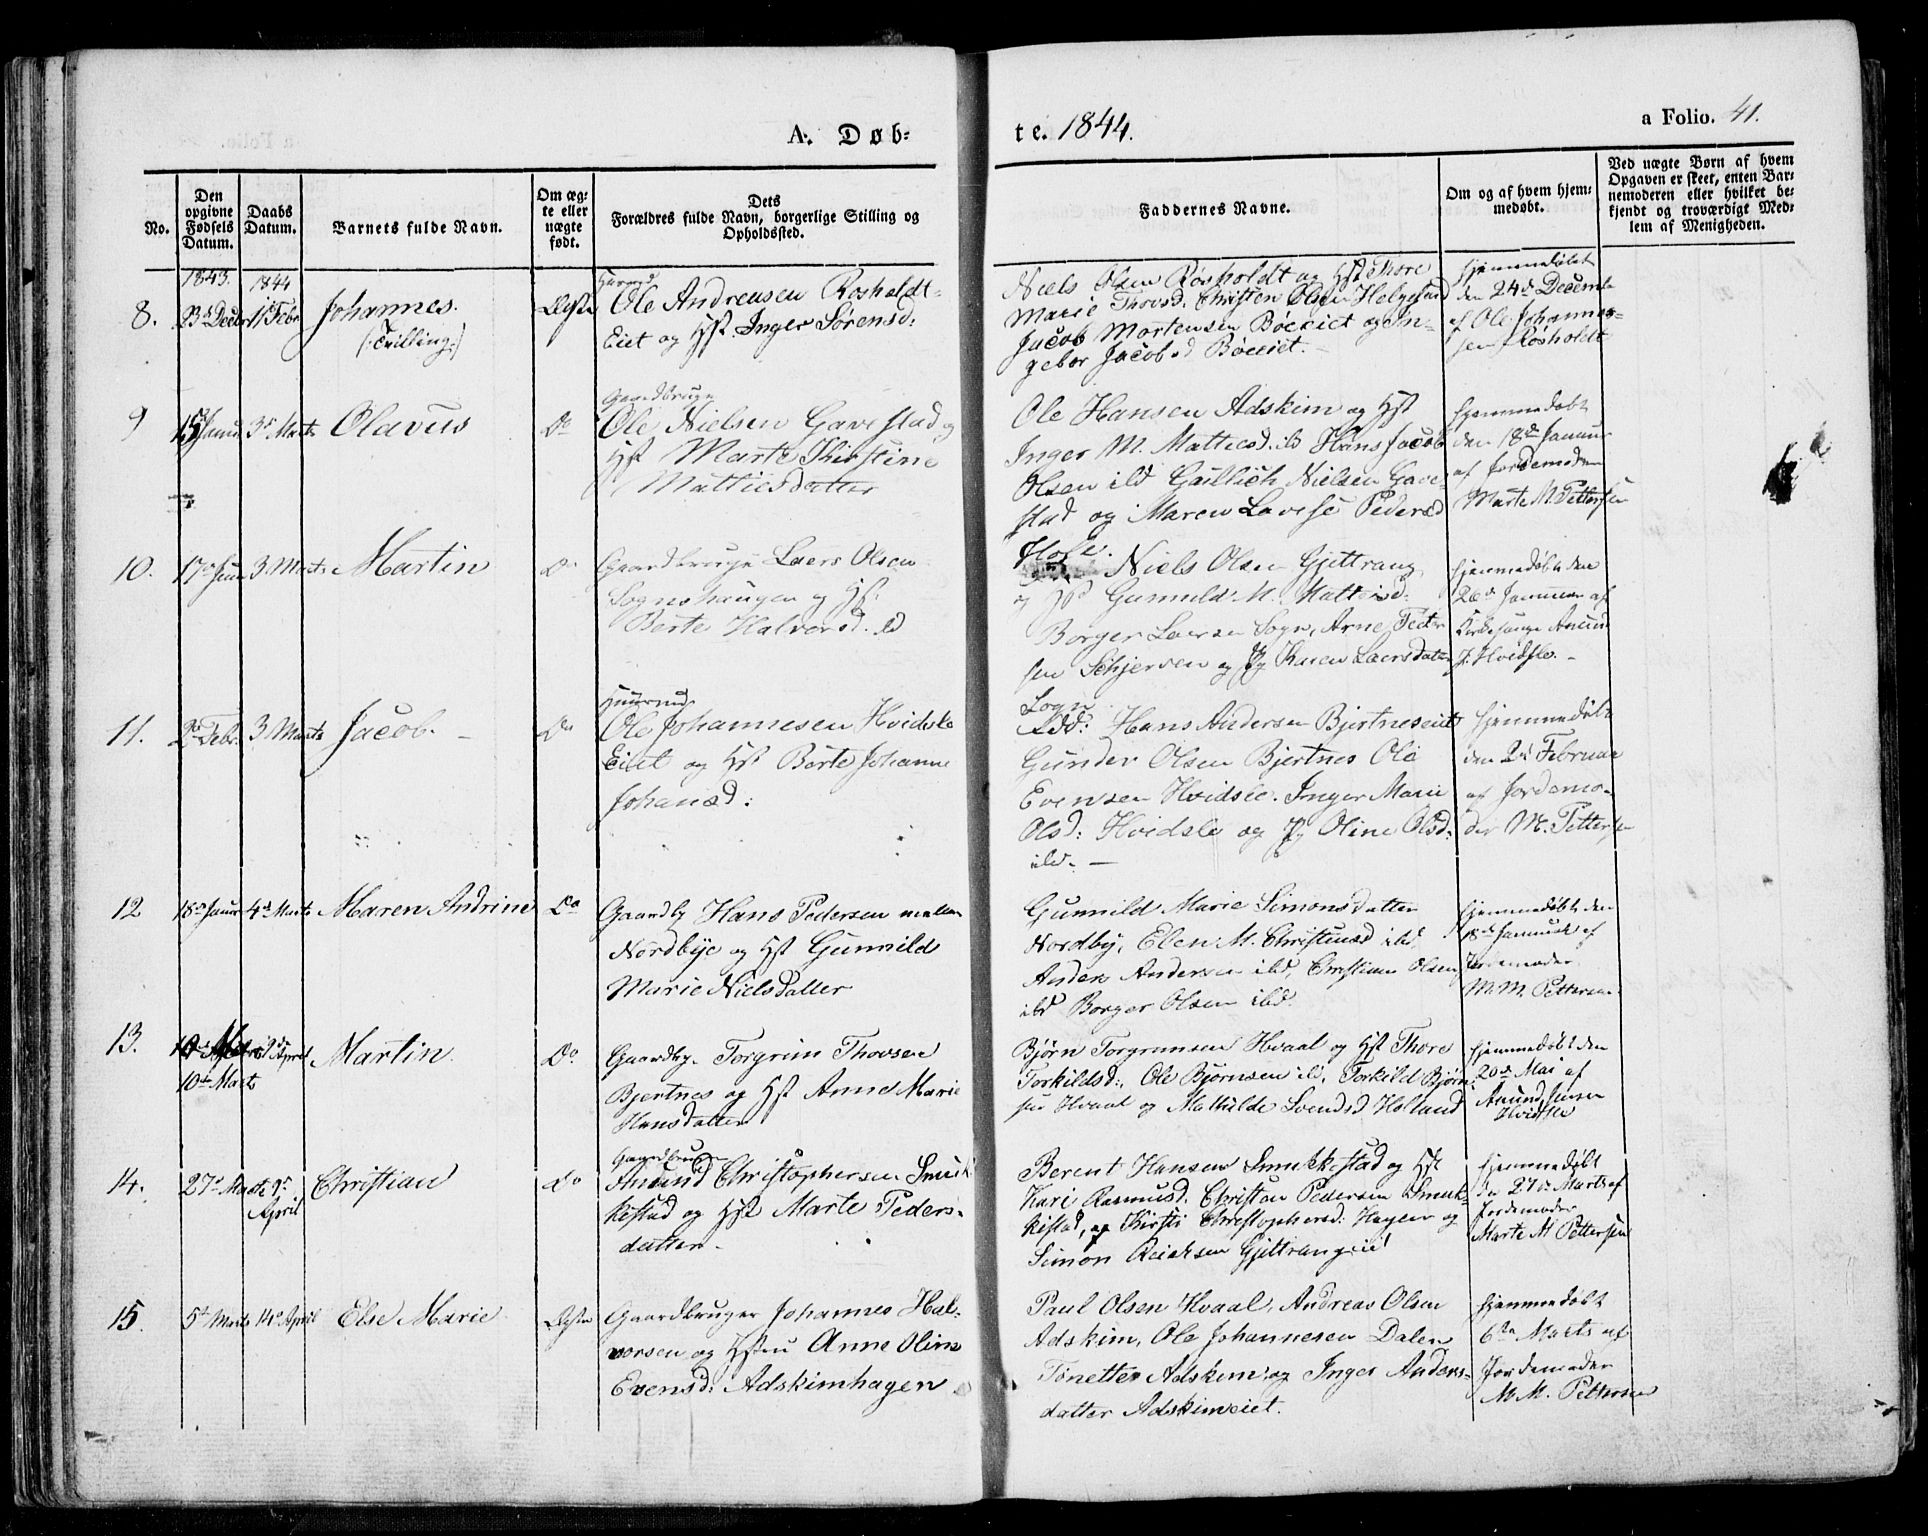 A. Døb-
te. 1844.
a Folio. 41.
No.
Den
opgivne
Fødsels
Datum.
Daabs
Datum.
Barnets fulde Navn.
Om æg-
te eller
uægte
født.
Dets
Forældres fulde Navn, borgerlige Stilling og
Opholdssted.
Faddernes Navne.
Om og af hvem hjem-
medøbt.
Ved uægte Børn af hvem
Opgaven er skeet, enten Bar-
nemoderen eller hvilket be-
kjendt og troværdigt Med-
lem af Menigheden.
8.
1843.
23de Decbr
1844
11 Febr
Johannes.
(: Tvilling :)
Ægte
Huusmd
Ole Andreasen Rosholdt-
Eiet og Hst. Inger Sørensd:
Niels Olsen Rosholdt og Hst Thore
Marie Thovsd. Christen Olsen Helgestad
Jacob Mortensen Böeeiet og In-
gebor Jacobsd Böeeiet.
hjemmedøbt
den 24de Decemb
af Ole Johannes-
sen Rosholdt
9
15 Janua
3de Marts
Olavus
Do
Gaardbruger
Ole Nielsen Gavestad og
Hst Marte Kirstine
Mattiesdatter
Ole Hansen Adskim og Hst
Inger M. Mattiesd. ib Hans Jacob
Olsen ibd Gullich Nielsen Gave-
stad og Maren Lovise Pedersd
Hole.
hjemmedøbt
den 18de Januar
af Jordemoder
Marte M. Pettersen
10.
17de Janu
3. Marts
Martin
Do
Gaardbruger Laers Olsen
Sognshaugen og Hst
Berte Halvorsd. ibd
Niels Olsen Gjittrang
og Hst Gunnild M. Mattiesd:
Borger Laersen Sogn, Arne Petter
sen Schjersen og Pg Karen Laersdatter
Sogn
hjemmedøbt den
26de Januar af
Kirkesanger Anund
J. Hvidsle. -
11.
2de Febr.
3. Marts
Jacob. -
Do
Huusmd
Ole Johannesen Hvidsle
Eiet og Hst Berte Johanne
Johansd:
Hans Andersen Bjertneseiet
Gunder Olsen Bjertnes Ole
Evensen Hvidsle. Inger Marie
Olsd: Hvidsle og Pg Oline Olsd:
ibd. -
hjemmedøbt
den 2de Februar
af Jordemo-
der M. Pettersen
12
18de Janur
4de Marts
Maren Andrine
Do
Gaardbg Hans Pedersen mellem
Nordbye og Hst Gunnild
Marie Nielsdatter
Gunnild Marie Simonsdatter
Nordby, Elen M. Christensd ibd,
Anders Andersen ibd, Christian Olsen
ibd Borger Olsen ibd.
hjemmedøbt den
18de Januar af
Jordemoder
M. M. Pettersen.
13.
10de Marts
April
Martin.
Do
Gaardbg. Torgrim Thovsen
Bjertnes og Hst Anne Marie
Hansdatter
Bjørn Torgrimsen Hvaal og Hst Thore
Torkildsd:, Ole Bjørnsen ib, Torkild Bjørn-
sen Hvaal og Mathilde Svendsd Holland
hjemmedøbt den
20de Mai af
Anund Jensen
Hvidsle
14.
27de Marts
9de
April
Christian
Do
Gaardbruger
Anund Christophersen Smuk-
kestad og Hst Marte Peders-
datter.
Berent Hansen Smukkestad og Hst
Kari Rasmusd. Christen Pedersen Smuk-
kestad, og Kirsti Christophersd: Hagen og
Simon Gjittrangeiet
hjemmedøbt
den 27de Marts af
Jordemoder
Marte M Pettersen
15.
5te Marts
14de April
Else Marie.
Ægte
Gaardbruger Johannes Hal-
vorsen og Hstru Anne Oline
Evensd: Adskimhagen
Paul Olsen Hvaal, Andreas Olsen
Adskim, Ole Johannesen Dalen
Tønetter Adskim og Inger Anders-
datter Adskimeiet.
hjemmedøbt
6te Marts af
Jordemoder
M M. Pettersen